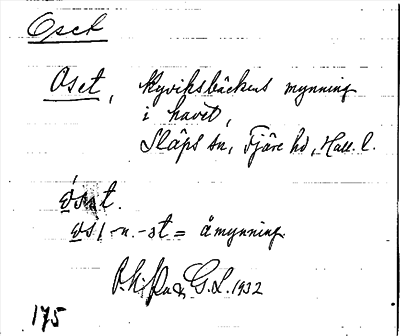 Oset
Oset, Kyviksbäckens mynning
i havet,
Släps sn, Fjäre hd, Hall. l.
ósət.
ós, -n. -st = åmynning
G.L. 1932
175